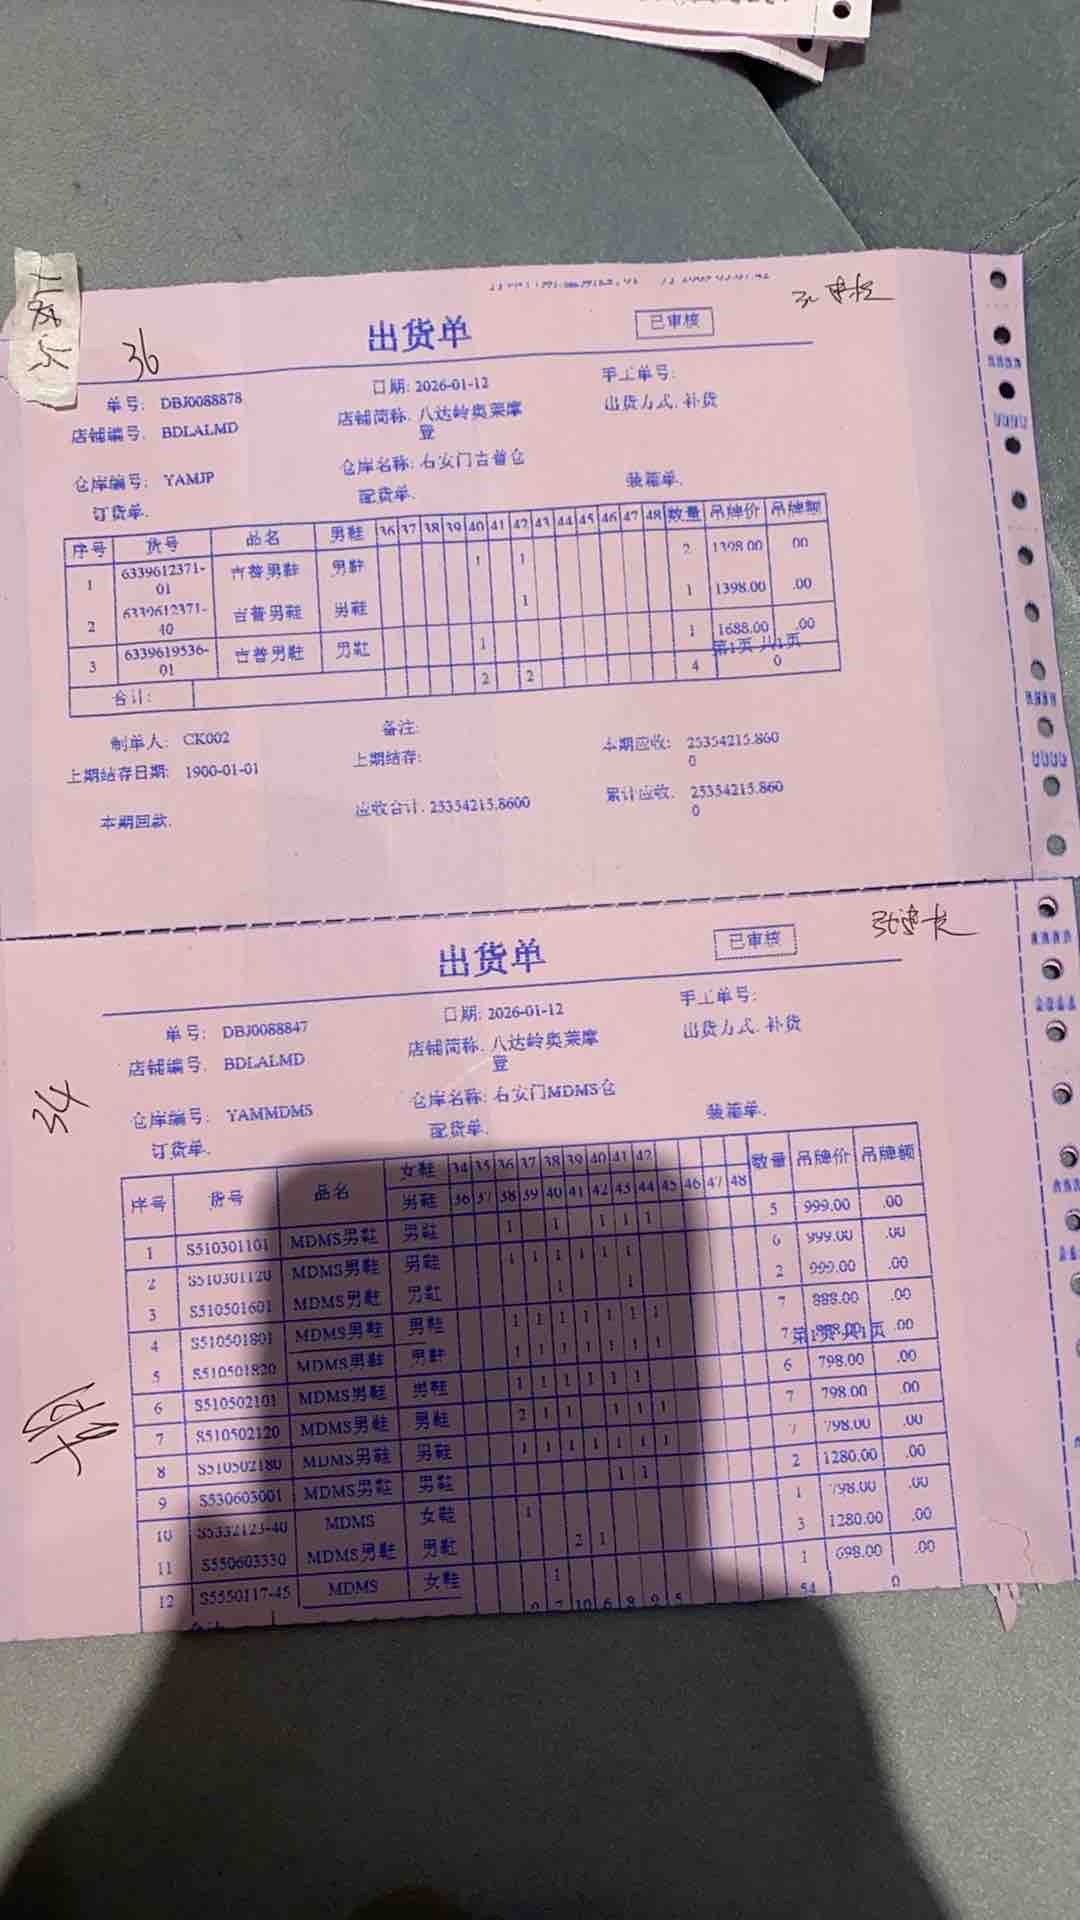 36
出货单
已审核
单号: DBJ0088878
日期: 2026-01-12
手工单号:
店铺编号. BDLALMD
店铺简称. 八达岭奥莱摩登
出货方式. 补货
仓库编号: YAMJP
仓库名称: 右安门吉普仓
订货单.
配货单.
装箱单.
序号 货号 品名 男鞋 36 37 38 39 40 41 42 43 44 45 46 47 48 数量 吊牌价 吊牌额
1 6339612371-01 吉普男鞋 男鞋 1 1 2 1398.00 .00
2 6339612371-40 吉普男鞋 男鞋 1 1 1398.00 .00
3 6339619536-01 吉普男鞋 男鞋 1 1 1688.00 .00
第1页 共1页
合计: 2 2 4 0
制单人: CK002
备注:
本期应收: 25354215.8600
上期结存日期: 1900-01-01
上期结存:
本期回款.
应收合计. 25354215.8600
累计应收. 25354215.8600
出货单
已审核
34
单号: DBJ0088847
日期: 2026-01-12
手工单号:
店铺编号. BDLALMD
店铺简称. 八达岭奥莱摩登
出货方式. 补货
仓库编号: YAMMDMS
仓库名称: 右安门MDMS仓
订货单.
配货单.
装箱单.
序号 货号 品名 女鞋 34 35 36 37 38 39 40 41 42 数量 吊牌价 吊牌额
男鞋 36 37 38 39 40 41 42 43 44 45 46 47 48
1 S510301101 MDMS男鞋 男鞋 1 1 1 1 1 5 999.00 .00
2 S510301120 MDMS男鞋 男鞋 1 1 1 1 1 1 6 999.00 .00
3 S510501601 MDMS男鞋 男鞋 1 1 2 999.00 .00
4 S510501801 MDMS男鞋 男鞋 1 1 1 1 1 1 1 7 888.00 .00
5 S510501820 MDMS男鞋 男鞋 1 1 1 1 1 1 1 7 .00
第1页 共1页
6 S510502101 MDMS男鞋 男鞋 1 1 1 1 1 1 6 798.00 .00
7 S510502120 MDMS男鞋 男鞋 2 1 1 1 1 1 7 798.00 .00
8 S510502180 MDMS男鞋 男鞋 1 1 1 1 1 1 1 7 798.00 .00
9 S530603001 MDMS男鞋 男鞋 1 1 2 1280.00 .00
10 S5332123-40 MDMS 女鞋 1 1 798.00 .00
11 S550603330 MDMS男鞋 男鞋 2 1 3 1280.00 .00
12 S5550117-45 MDMS 女鞋 1 1 698.00 .00
合计: 7 10 6 8 9 5 54 0